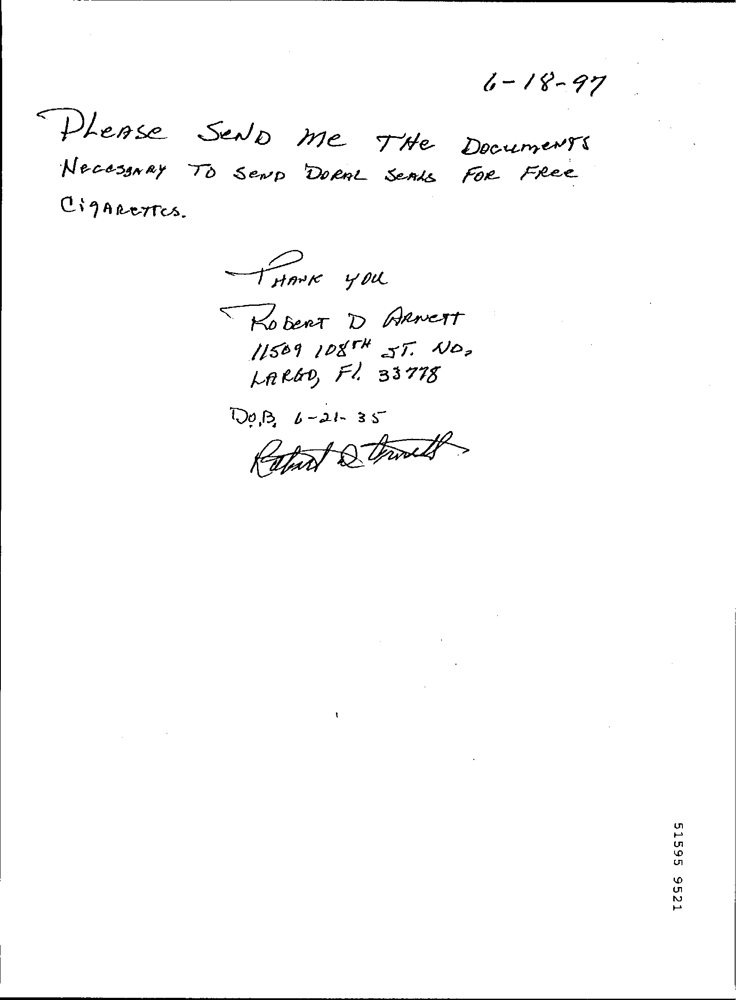 6-18-97
Please Send me The Documents
Necessary To Send Doral Seals For Free
Cigarettes.
Thank you
Robert D Arnett
11509 108TH ST. No.
Largo, Fl. 33778
D.O.B. 6-21-35
Robert D Arnett
51595 9521